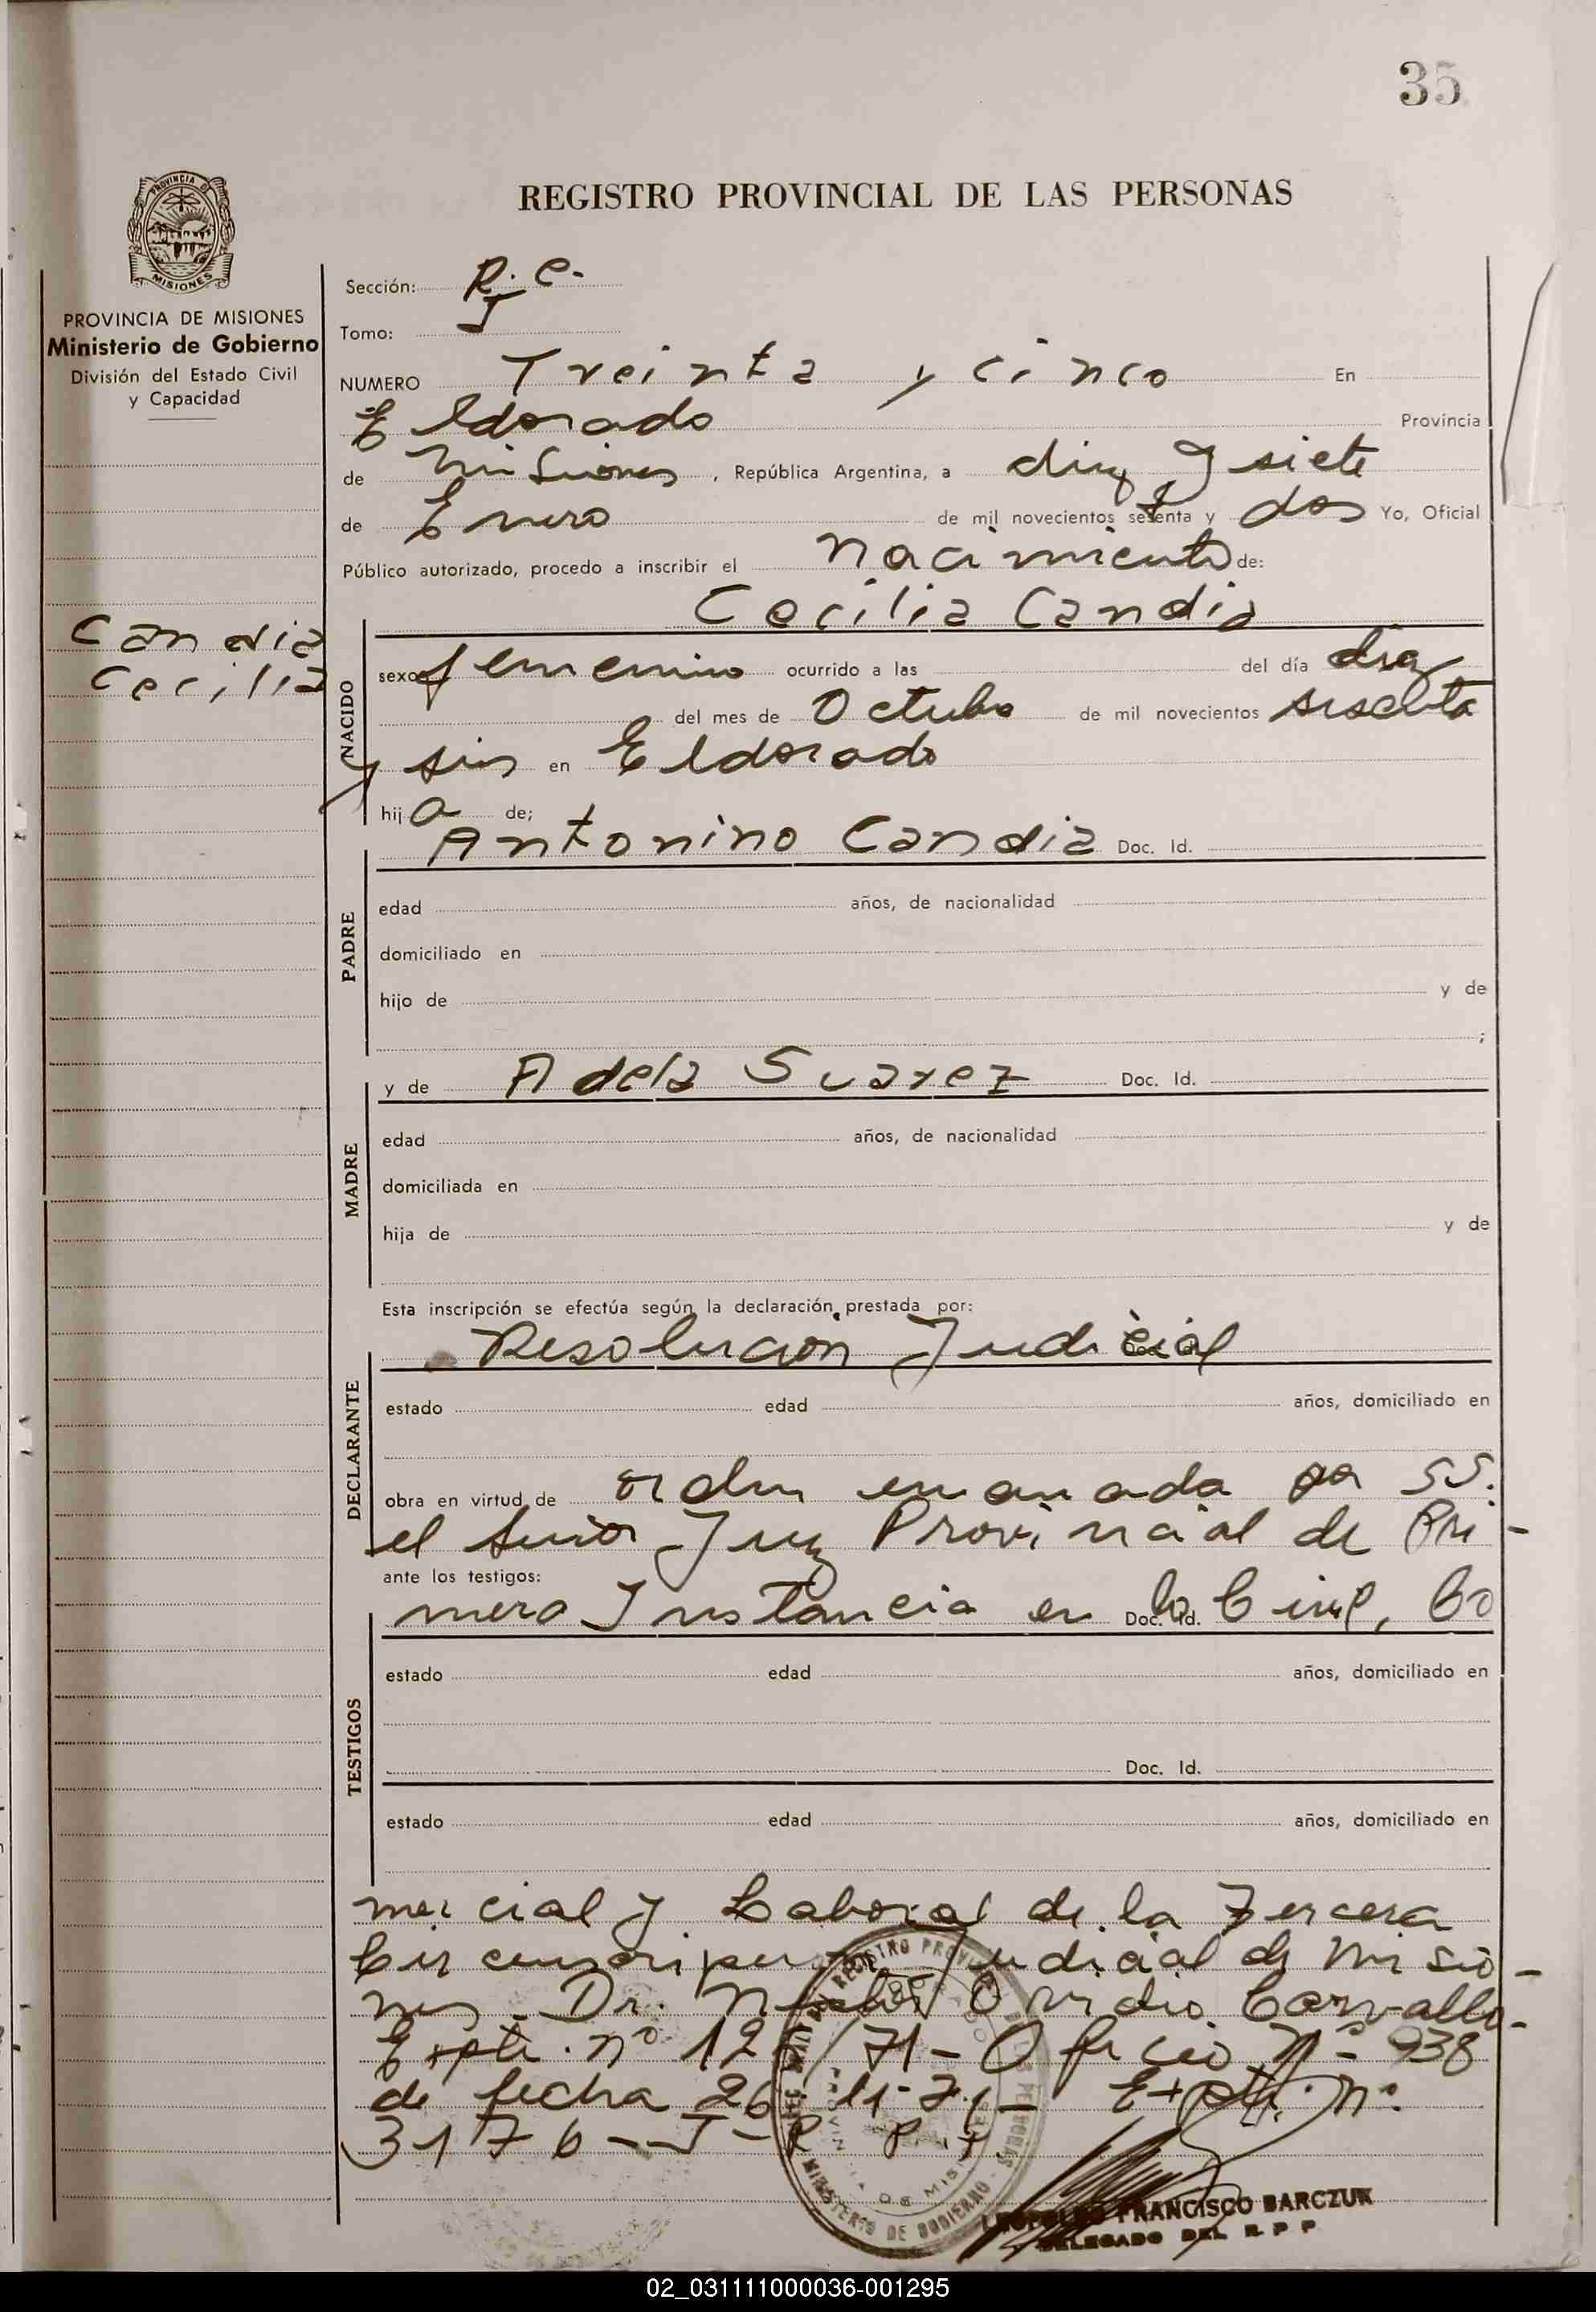 35
REGISTRO PROVINCIAL DE LAS PERSONAS
PROVINCIA DE MISIONES
PROVINCIA DE MISIONES
Ministerio de Gobierno
División del Estado Civil
y Capacidad
Candia
Cecilia
Sección: R. C.
Tomo: I
NUMERO Treinta y cinco En
Eldorado Provincia
de Misiones, República Argentina, a diez y siete
de Enero de mil novecientos setenta y dos Yo, Oficial
Público autorizado, procedo a inscribir el nacimiento de:
Cecilia Candia
NACIDO
sexo femenino ocurrido a las del día diez
del mes de Octubre de mil novecientos sesenta
y seis en Eldorado
hija de;
Antonino Candia Doc. Id.
PADRE
edad años, de nacionalidad
domiciliado en
hijo de y de
;
y de Adela Suarez Doc. Id.
MADRE
edad años, de nacionalidad
domiciliada en
hija de y de
Esta inscripción se efectúa según la declaración prestada por:
Resolución Judicial
DECLARANTE
estado edad años, domiciliado en
obra en virtud de orden emanada por SS.
el Señor Juez Provincial de Pri-
ante los testigos:
mera Instancia en lo Civil, Co
Doc. Id.
TESTIGOS
estado edad años, domiciliado en
Doc. Id.
estado edad años, domiciliado en
mercial y Laboral de la Tercera
Circunscripción Judicial de Misio-
nes. Dr. Nestor Ovidio Carvallo-
Expte. nº /71- Oficio Nº 938
de fecha 26 11-71- Expte. nº
3176--R. P. P.
MINISTERIO DE GOBIERNO
FRANCISCO BARCZUK
DELEGADO DEL R P P
02_031111000036-001295